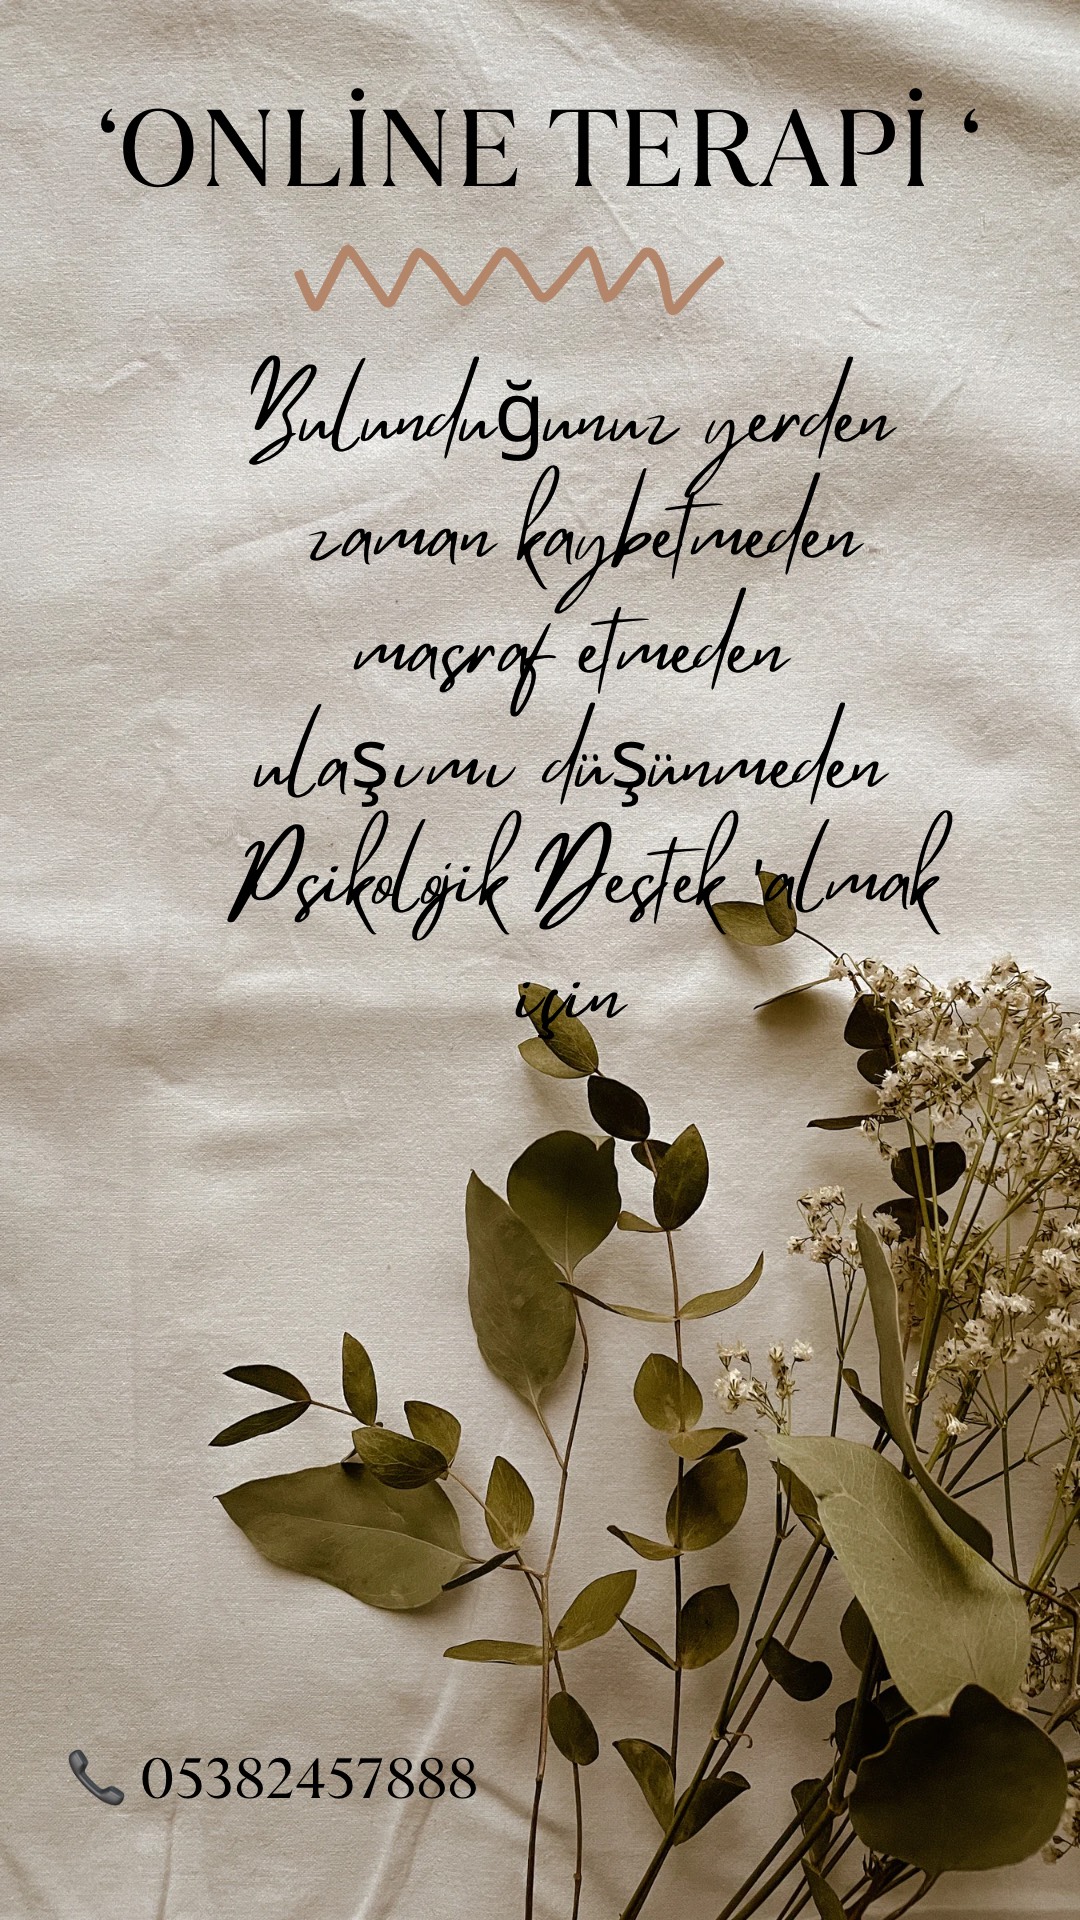 ‘ONLİNE TERAPİ ‘
Bulunduğunuz yerden
zaman kaybetmeden
masraf etmeden
ulaşımı düşünmeden
Psikolojik Destek 'almak
için
05382457888